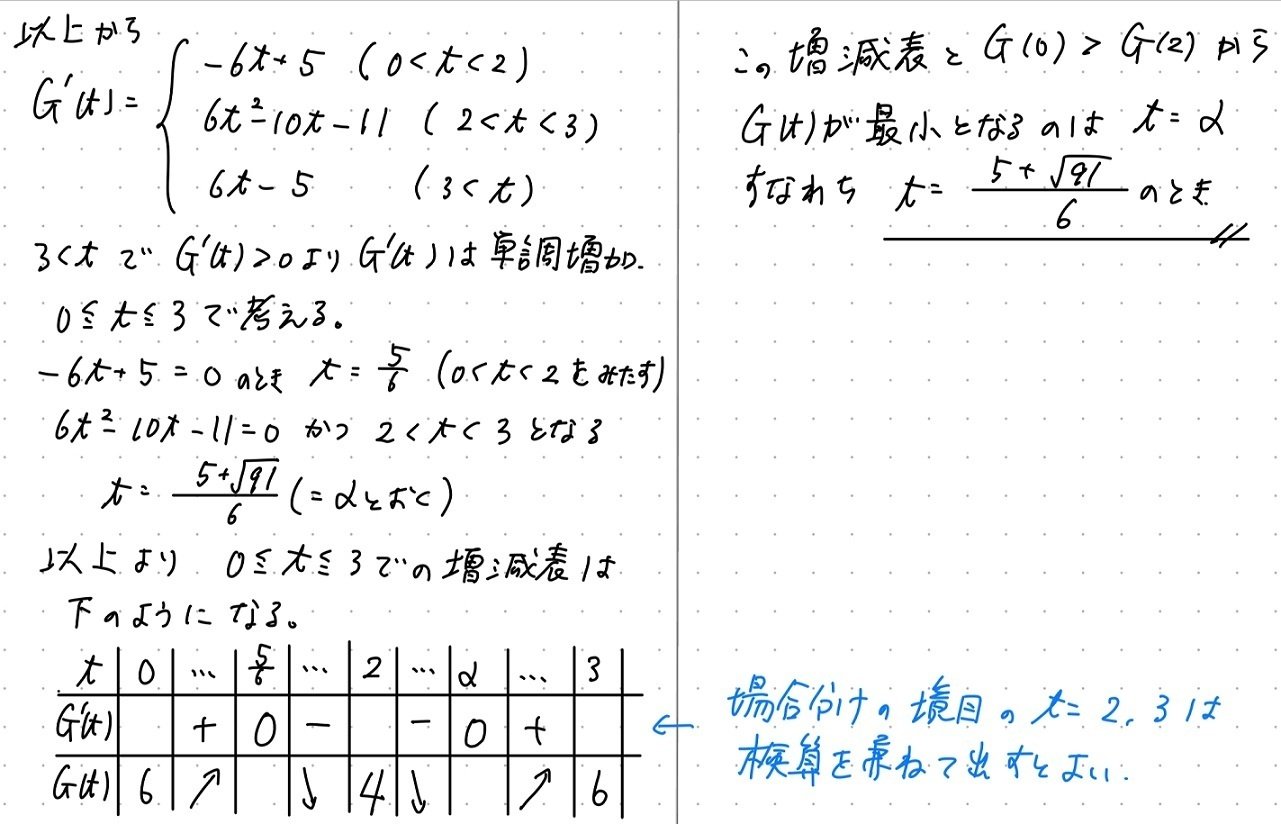 以上から
G'(t) = { -6t+5 (0<t<2)
6t²-10t-11 (2<t<3)
6t-5 (3<t)
3<t で G'(t)>0 より G'(t) は 単調増加.
0≦t≦3 で考える。
-6t+5=0 のとき t=5/6 (0<t<2 をみたす)
6t²-10t-11=0 かつ 2<t<3 となる
t= (5+√91)/6 (=αとおく)
以上より 0≦t≦3 での増減表は
下のようになる。
t | 0 | … | 5/6 | … | 2 | … | α | … | 3
G'(t) | | + | 0 | − | | − | 0 | + |
G(t) | 6 | ↗ | | ↓ | 4 | ↓ | | ↗ | 6
この増減表と G(0)>G(2) から
G(t)が最小となるのは t=α
すなわち t= (5+√91)/6 のとき
← 場合分けの境目の t=2, 3 は
検算を兼ねて出すとよい.